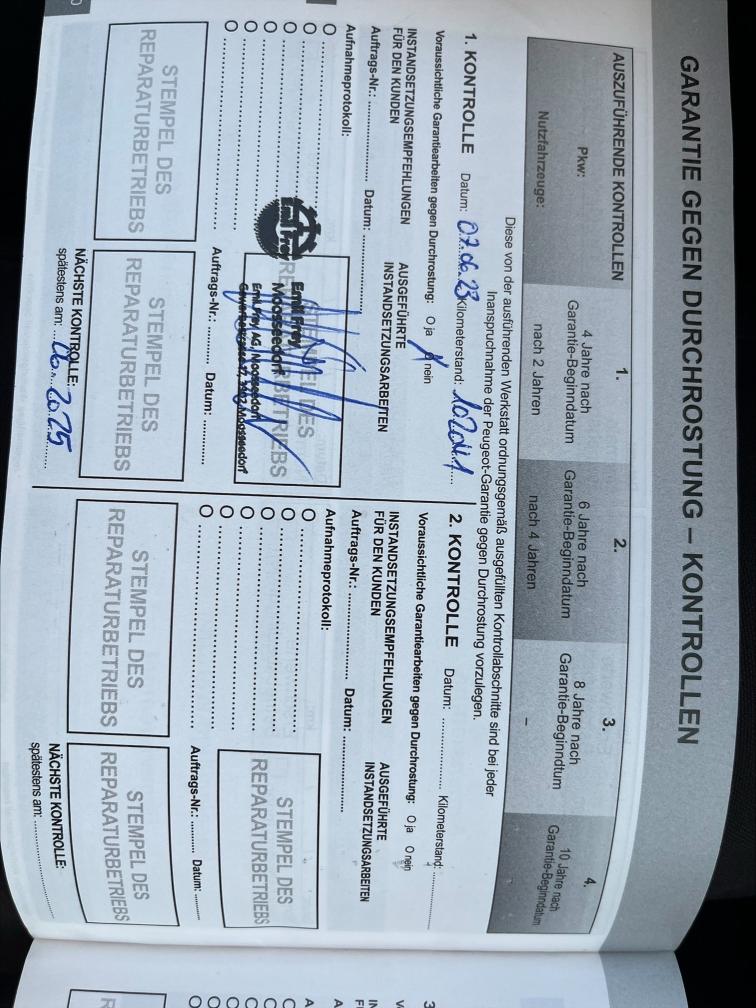 GARANTIE GEGEN DURCHROSTUNG – KONTROLLEN
AUSZUFÜHRENDE KONTROLLEN
1.
2.
3.
4.
Pkw:
4 Jahre nach
Garantie-Beginndatum
6 Jahre nach
Garantie-Beginndatum
8 Jahre nach
Garantie-Beginndtum
10 Jahre nach
Garantie-Beginndatum
Nutzfahrzeuge:
nach 2 Jahren
nach 4 Jahren
–
Diese von der ausführenden Werkstatt ordnungsgemäß ausgefüllten Kontrollabschnitte sind bei jeder
Inanspruchnahme der Peugeot-Garantie gegen Durchrostung vorzulegen.
1. KONTROLLE Datum: 07.06.23 Kilometerstand: 102041
Voraussichtliche Garantiearbeiten gegen Durchrostung: O ja O nein
INSTANDSETZUNGSEMPFEHLUNGEN
FÜR DEN KUNDEN
AUSGEFÜHRTE
INSTANDSETZUNGSARBEITEN
Auftrags-Nr.: ............ Datum: ............
Aufnahmeprotokoll:
STEMPEL DES
REPARATURBETRIEBS
Emil Frey
Emil Frey
Moosseedorf
Emil Frey AG, Moosseedorf
Auftrags-Nr.: ............ Datum: ............
STEMPEL DES
REPARATURBETRIEBS
STEMPEL DES
REPARATURBETRIEBS
NÄCHSTE KONTROLLE:
spätestens am: 06.2025
2. KONTROLLE Datum: ............ Kilometerstand: ............
Voraussichtliche Garantiearbeiten gegen Durchrostung: O ja O nein
INSTANDSETZUNGSEMPFEHLUNGEN
FÜR DEN KUNDEN
AUSGEFÜHRTE
INSTANDSETZUNGSARBEITEN
Auftrags-Nr.: ............ Datum: ............
Aufnahmeprotokoll:
STEMPEL DES
REPARATURBETRIEBS
Auftrags-Nr.: ............ Datum: ............
STEMPEL DES
REPARATURBETRIEBS
STEMPEL DES
REPARATURBETRIEBS
NÄCHSTE KONTROLLE:
spätestens am: ............